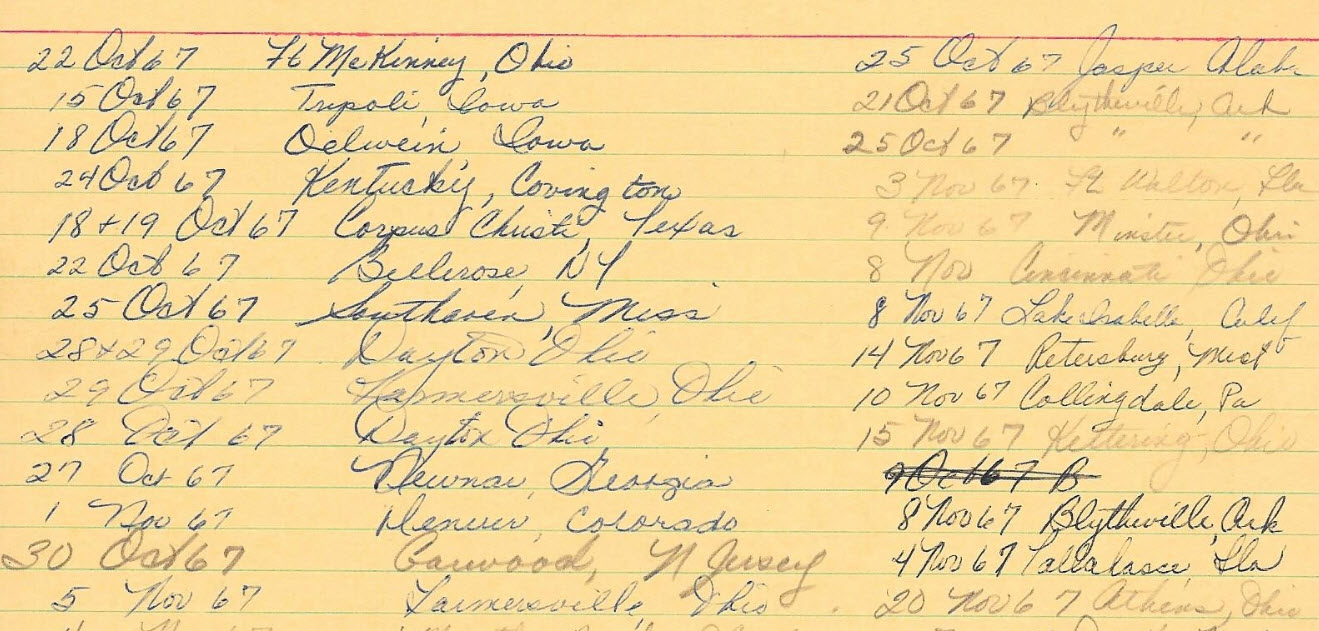 22 Oct 67 Ft McKinney, Ohio
15 Oct 67 Tripoli, Iowa
18 Oct 67 Oelwein, Iowa
24 Oct 67 Kentucky, Covington
18+19 Oct 67 Corpus Christi, Texas
22 Oct 67 Bellerose, NY
25 Oct 67 Southaven, Miss
28+29 Oct 67 Dayton, Ohio
29 Oct 67 Farmersville, Ohio
28 Oct 67 Dayton Ohio
27 Oct 67 Newnan, Georgia
1 Nov 67 Denver, Colorado
30 Oct 67 Garwood, N Jersey
5 Nov 67 Farmersville, Ohio
25 Oct 67 Jasper Alaba
21 Oct 67 Blytheville, Ark
25 Oct 67 " "
3 Nov 67 Ft Walton, Fla
9 Nov 67 Minster, Ohio
8 Nov Cincinnati Ohio
8 Nov 67 Lake Isabella, Calif
14 Nov 67 Petersburg,
10 Nov 67 Collingdale, Pa
15 Nov 67 Kettering, Ohio
9 Oct 67 B
8 Nov 67 Blytheville, Ark
4 Nov 67 Tallahasee, Fla
20 Nov 67 Athens, Ohio